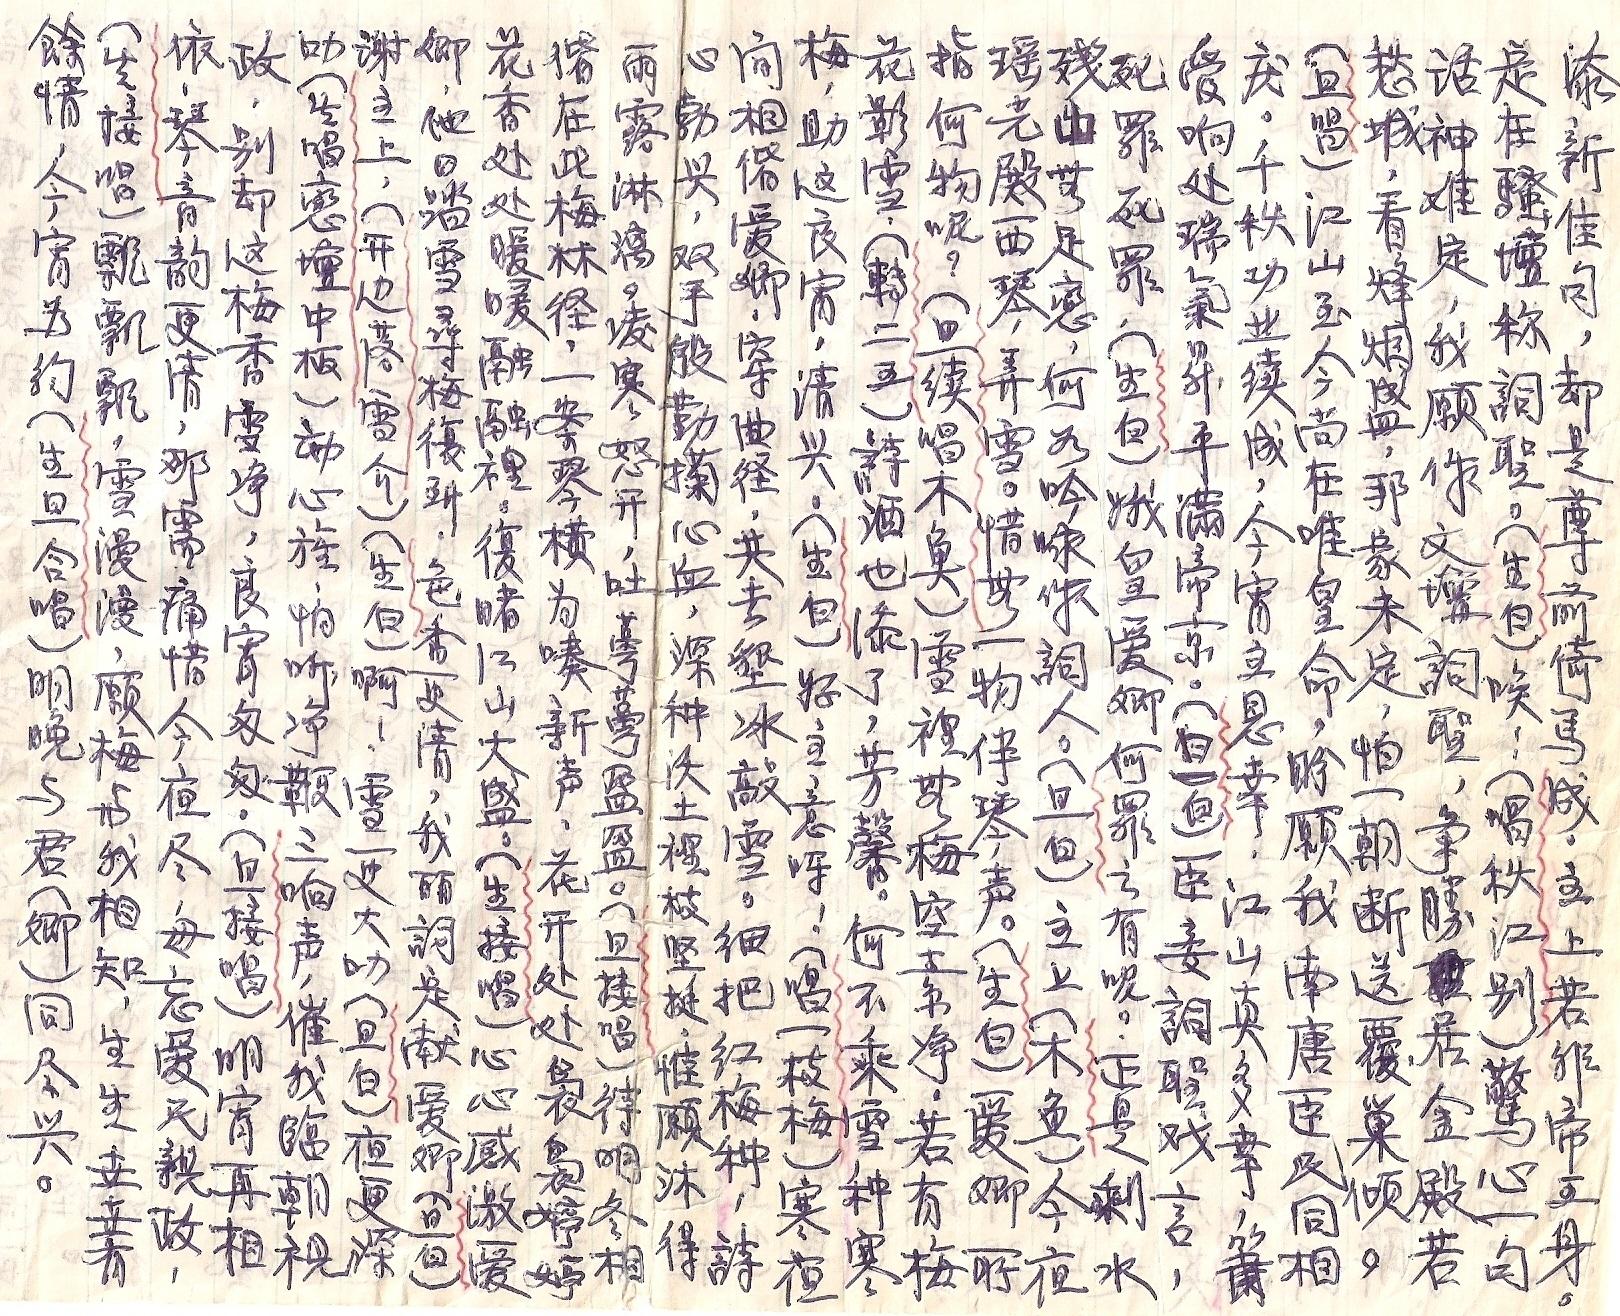 添新佳句，却是尊前倚馬成。主上若非帝王身。
定在騷壇称詞聖。（生白）唉！（唱秋江别）驚心一句
话神难定，我願作文壇詞聖，争勝居金殿若
愁城，看烽烟盛，邦家未定，怕一朝断送覆巢倾。
（旦唱）江山至今尚在唯皇命，盼願我南唐臣民同相
庆。千秋功业续成，今宵主恩幸，江山真多幸，箫
管响处瑞氣昇平滿帝京。（旦白）臣妾詞职戏言，
死罪死罪，（生白）娥皇爱卿何罪之有呢。正是剩水
残山 无足恋，何如吟咏作詞人。（旦白）主上（木魚）今夜
瑶光殿西琴，弄雪。惜无一物伴琴声。（生白）爱卿所
指何物呢？（旦续唱木魚）雪裡无梅空素净。若有梅
花彰雪，（轉二五）詩酒也添了，芳馨。何不乘雪种寒
梅，助这良宵，清兴。（生白）好主意呀！（唱一枝梅）寒夜
间相偕爱卿，穿曲径，共去墾冰敲雪。细把红梅种，詩
心勃兴，双手殷勤摘心血，深种沃土裡枝坚挺。惟願沐得
雨露淋漓。凌寒怒开，吐萼萼盈盈。（旦接唱）待明冬相
偕在此梅林径，一案琴横为奏新声，花开处处裊裊婷婷
花香处处暖暖融融裡。復睹江山大盛。（生接唱）心心感激爱
卿，他日踏雪尋梅復到，色香更清，我丽詞定献爱卿（旦白）
谢主上，（开边落雪介）（生白）啊！雪更大叻（旦白）夜更深
叻（生唱恋壇中板）动心旌，怕听净鞭三响声，催我臨朝視
政，别却这梅香雪净，良宵匆匆。（旦接唱）明宵再相
依，琴音韵更清，那需痛惜今夜尽，毋忘愛民親政，
（生接唱）飄飄飄，雪漫漫，願梅与我相知，生生世世著
餘情，今宵为约（生旦合唱）明晚与君（卿）同尽兴。